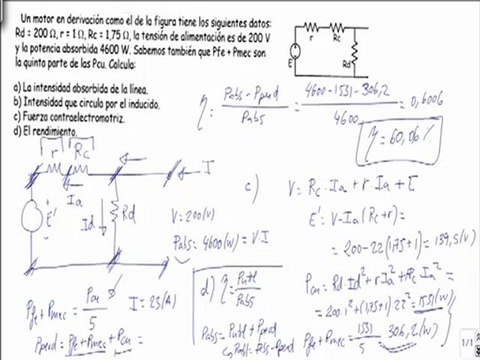 Un motor en derivación como el de la figura tiene los siguientes datos:
Rd = 200 Ω, r = 1 Ω, Rc = 1,75 Ω, la tensión de alimentación es de 200 V
y la potencia absorbida 4600 W. Sabemos también que Pfe + Pmec son
la quinta parte de las Pcu. Calcula:
a) La intensidad absorbida de la línea.
b) Intensidad que circula por el inducido.
c) Fuerza contraelectromotriz.
d) El rendimiento.
r Rc
E' Rd
η = (Pabs - Pperd) / Pabs = (4600 - 1531 - 306,2) / 4600 = 0,6006
η = 60,06 %
r Rc
I
Ia
E' Id Rd
V = 200 (V)
Pabs = 4600 (W) = V I
Pfe + Pmec = Pcu / 5
I = 23 (A)
Pperd = Pfe + Pmec + Pcu =
c) V = Rc · Ia + r Ia + E
E' = V - Ia (Rc + r) =
= 200 - 22 (1,75 + 1) = 139,5 (V)
Pcu = Rd · Id² + r Ia² + Rc Ia² =
= 200 · 1² + (1,75 + 1) 22² = 1531 (W)
Pfe + Pmec = 1531 / 5 = 306,2 (W)
d) η = Putil / Pabs
Pabs = Putil + Pperd
Putil = Pabs - Pperd
1/1